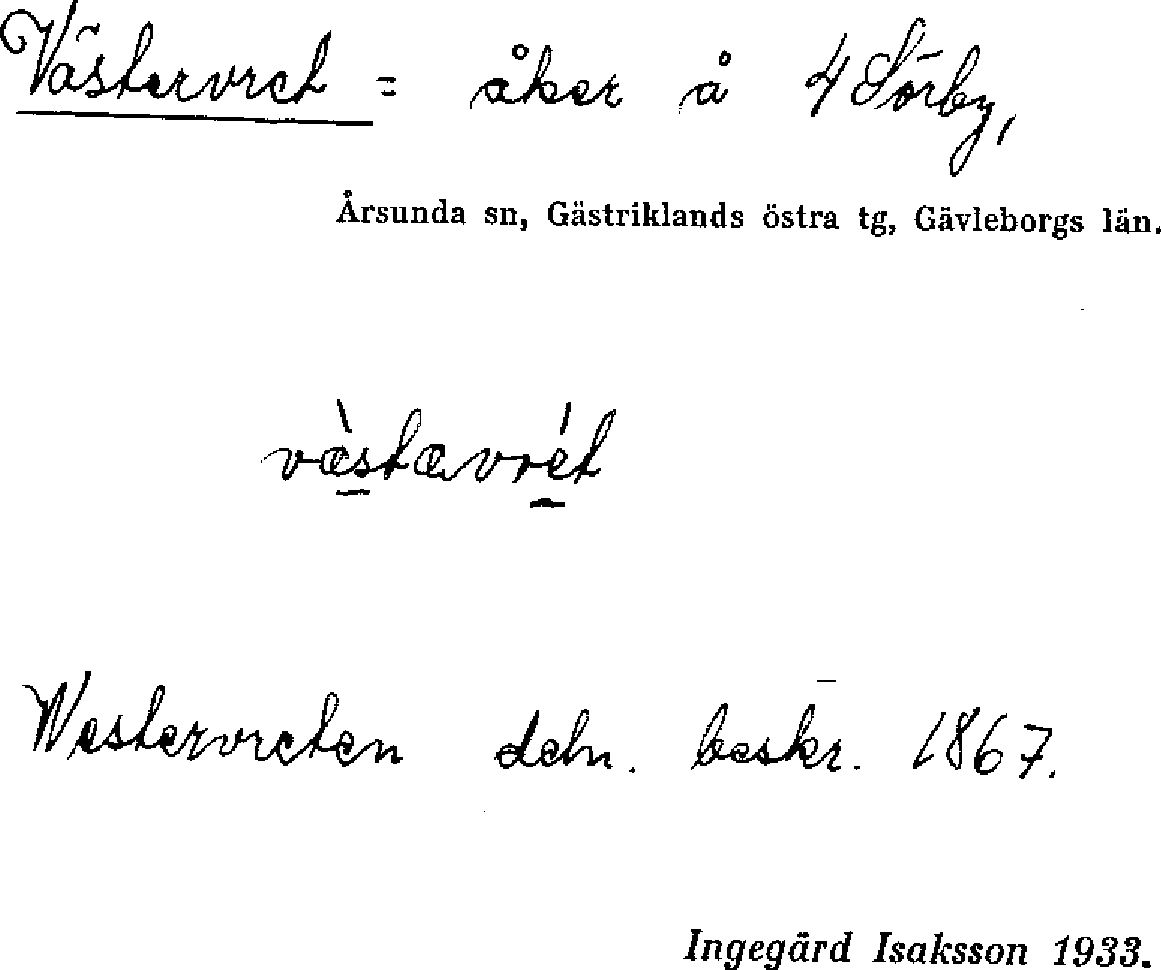 Västervret = åker å 4 Sörby,
Årsunda sn, Gästriklands östra tg, Gävleborgs län.
væ̀stavrét
Westervreten deln. beskr. 1867.
Ingegärd Isaksson 1933.